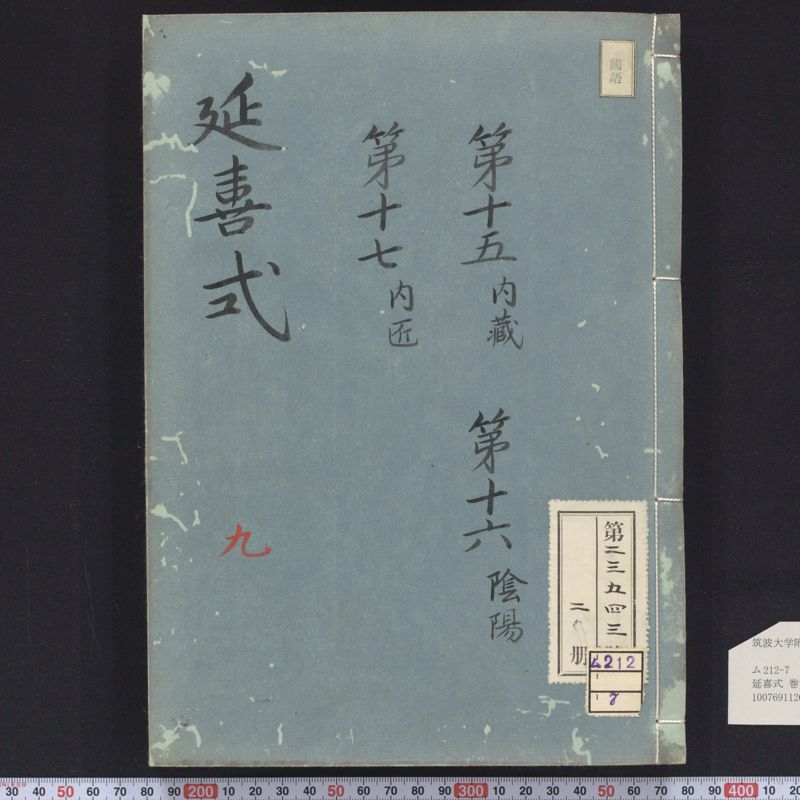 國語
第十五 内藏
第十六 陰陽
第十七 内匠
延喜式
九
第二三五四三
二
册
ム212
7
筑波大学附
ム212-7
延喜式 巻
1007691120
30 40 50 60 70 80 90 200 10 20 30 40 50 60 70 80 90 300 10 20 30 40 50 60 70 80 90 400 10 20